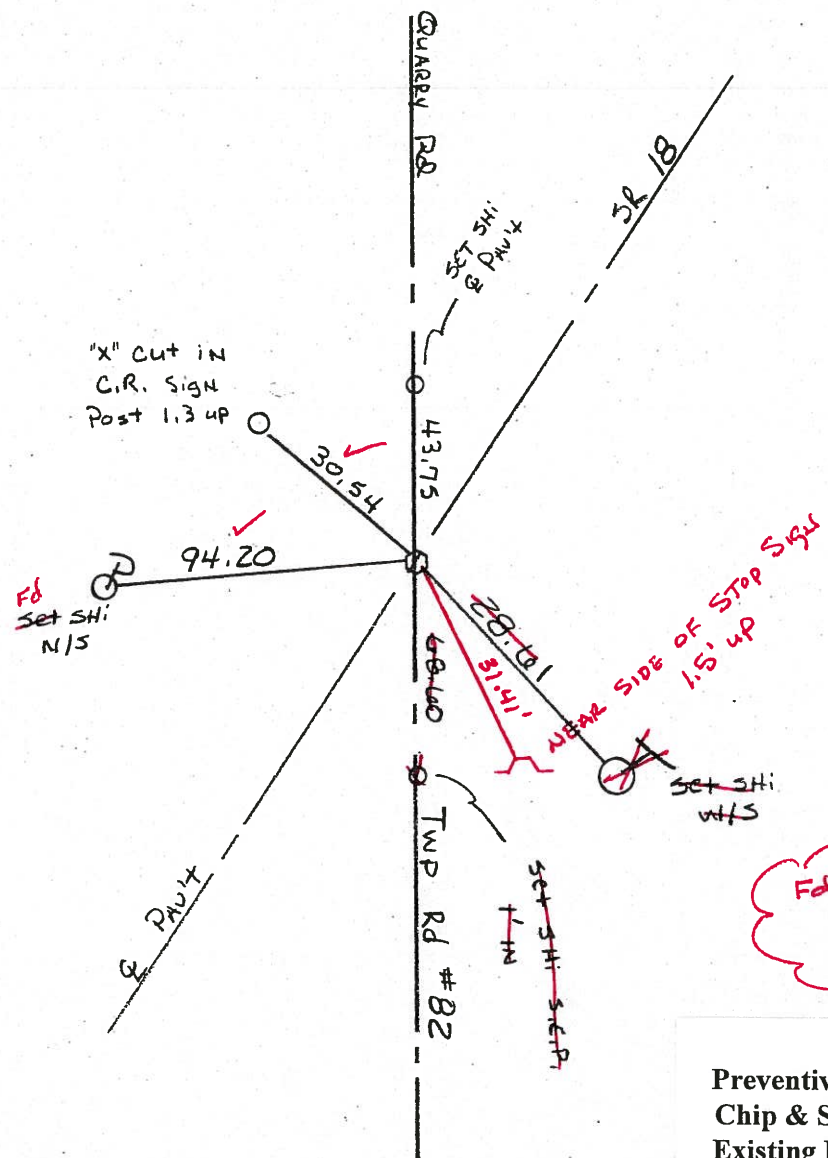 QUARRY Rd
SR 18
SET SHi
℄ PAV't
"X" Cut iN
C.R. SigN
Post 1.3 up
30.54
43.75
94.20
Fd
Set SHi
N/S
28.61
31.41'
NEAR SIDE OF STOP SigN
1.5' up
68.60
Set SHi
W/S
Twp Rd #82
Set SHi S.E.P.
1' IN
℄ PAV't
Fd
Preventiv
Chip & S
Existing